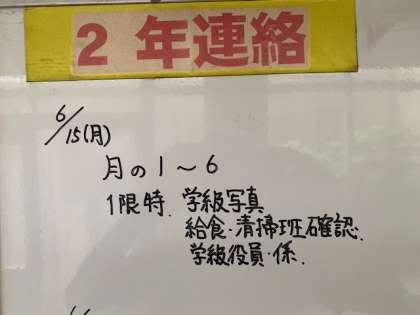 2年連絡
6/15(月)
月の1～6
1限時. 学級写真
給食・清掃班確認.
学級役員・係.